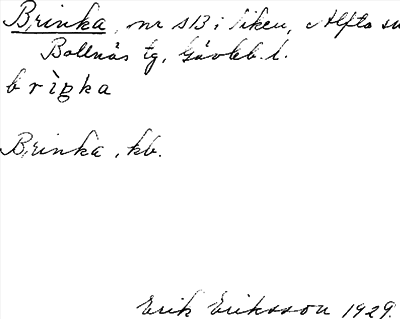 Brinka, nr 513 i Viken, Alfta sn
Bollnäs tg, Gävleb. l.
brìŋka
Brinka, kb.
Erik Eriksson 1929.